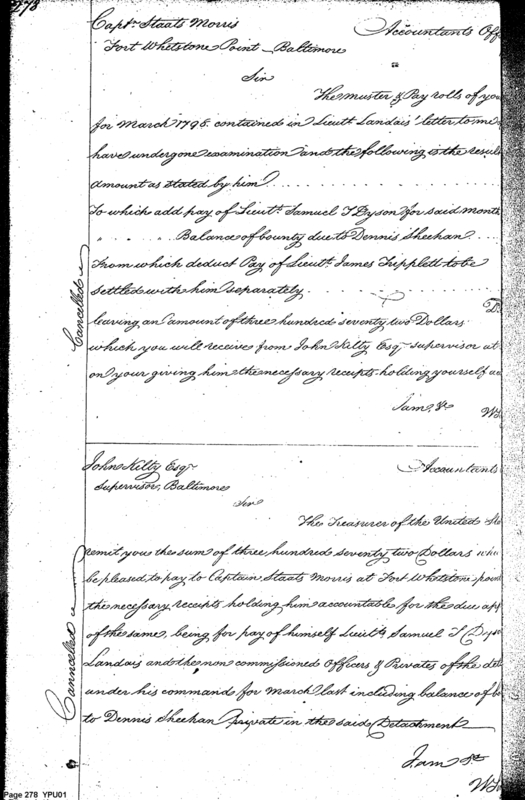 278
Capt. Staats Morris
Accountants Off
Fort Whetstone Point Baltimore
Sir
The muster & Pay rolls of you
for March 1798. contained in Lieut. Landais' letter to me
have undergone examination and the following is the resul
amount as stated by him
To which add pay of Lieut. Samuel T Dyson for said month
" " " Balance of bounty due to Dennis Sheehan
From which deduct Pay of Lieut. James Tripplett to be
settled with him separately
D
leaving an amount of three hundred seventy two Dollars
which you will receive from John Kilty Esqr. supervisor at
on your giving him the necessary receipts holding yourself ac
I am, &c
W
Cancelled
John Kilty Esqr
Accountants
Supervisor, Baltimore
Sir
The Treasurer of the United Sta
remit you the sum of three hundred seventy two Dollars whic
be pleased to pay to Captain Staats Morris at Fort Whetstone point
the necessary receipts holding him accountable for the due app
of the same, being for pay of himself Lieuts. Samuel T Dyso
Landais and the non commissioned Officers & Privates of the det
under his command for March last including balance of bo
to Dennis Sheehan private in the said Detachment
I am &c
W
Cancelled
Page 278 YPU01